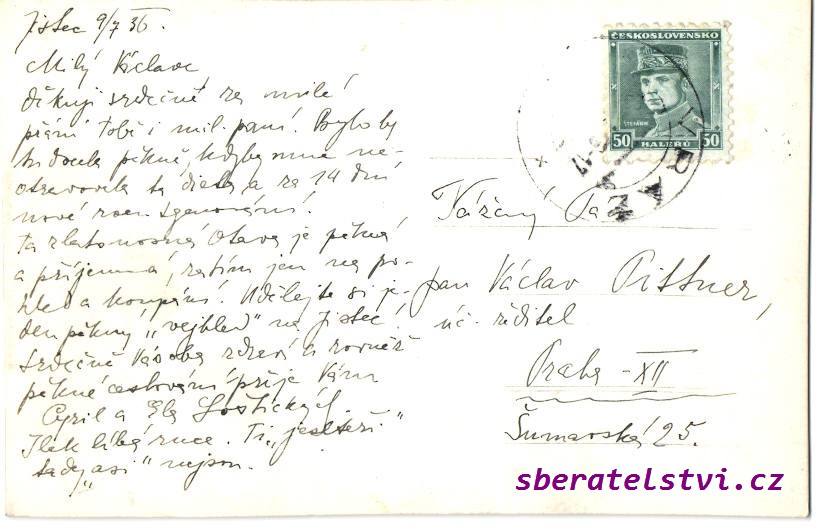 Jistec 9/7 36.
Milý Václave
děkuji srdečně za milé
přání Tobě i mil. paní. Bylo by
tu docela pěkně, kdyby mne ne-
otravovala ta dieta a za 14 dní
nové roentgenování.
Ta zlatonosná Otava je pěkná
a příjemná, zatím jen na po-
hled a koupání. Udělejte si je-
den pěkný „vejhled" na Jistec!
Srdečně Vás oba zdraví a rovněž
pěkné cestování přeje Vám
Cyril a Ela
líbá ruce. Ti „ještěři"
tady asi nejsou.
ČESKOSLOVENSKO
ŠTEFÁNIK
50 HALÉŘŮ 50
Vážený Pa
pan Václav Pittner,
úč. ředitel
Praha - XII
Šumavská 25.
sberatelstvi.cz